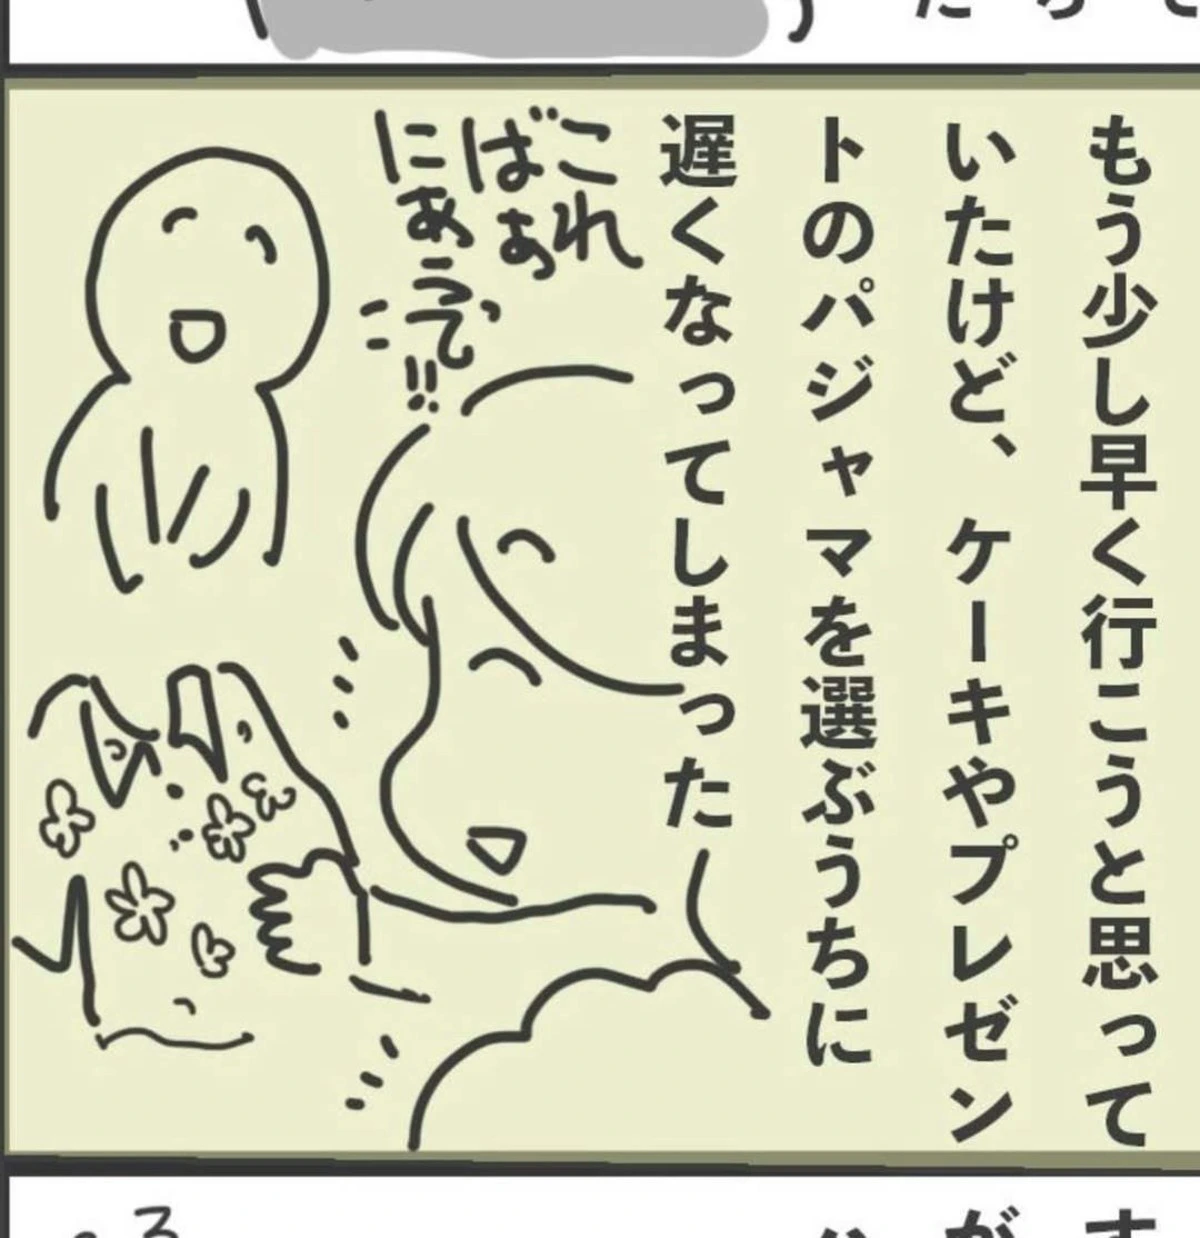 もう少し早く行こうと思って
いたけど、ケーキやプレゼン
トのパジャマを選ぶうちに
遅くなってしまった
これ
ばぁ
にあうで!!